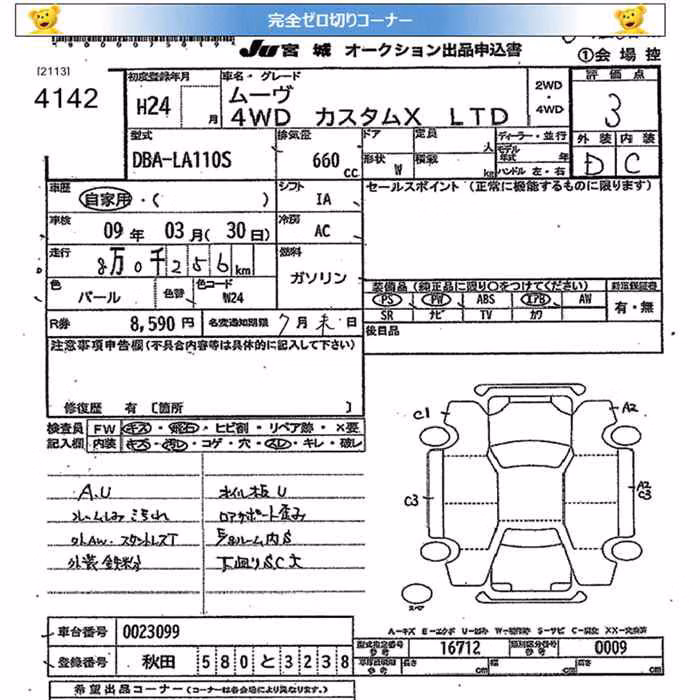 完全ゼロ切りコーナー
JU 宮城 オークション出品申込書
①会場控
[2113]
4142
初度登録年月
H24 月
車名・グレード
ムーヴ
4WD カスタムX LTD
2WD・4WD
評価点
3
型式
DBA-LA110S
排気量
660 cc
ドア
定員 人
形状 W
積載 kg
ディーラー・並行
モデル年式 年
ハンドル 左・右
外装 内装
D C
車歴
自家用・( )
シフト
IA
セールスポイント(正常に機能するものに限ります)
車検
09 年 03 月( 30 日)
冷房
AC
走行
8万0千256km
燃料
ガソリン
色
パール
色替
色コード
W24
装備品(純正品に限り○をつけてください)
新車保証書
PS PW ABS エアB AW
有・無
SR ナビ TV カワ
R券 8,590 円
名変通知期限 7月末日
後日品
注意事項申告欄(不具合内容等は具体的に記入して下さい)
修復歴 有 [箇所 ]
検査員記入欄
FW キズ・飛石・ヒビ割・リペア跡・×要
内装 キズ・汚レ・コゲ・穴・スレ・キレ・破レ
A.U
オイル板U
ルームしみこられ
ロアサポート歪み
外AW.スタッドレスT
外装鉄粉
下廻りSC大
C1
A2
C3
A2
C3
スペア
A-キズ E-エクボ U-凹み W-補修跡 S-サビ C-腐蝕 XX-交換済
車台番号 0023099
型式指定番号 16712
類別区分番号 0009
登録番号 秋田 580 と 3238
長さ cm 幅 cm 高さ cm
希望出品コーナー(コーナーは各会場により異なります。)